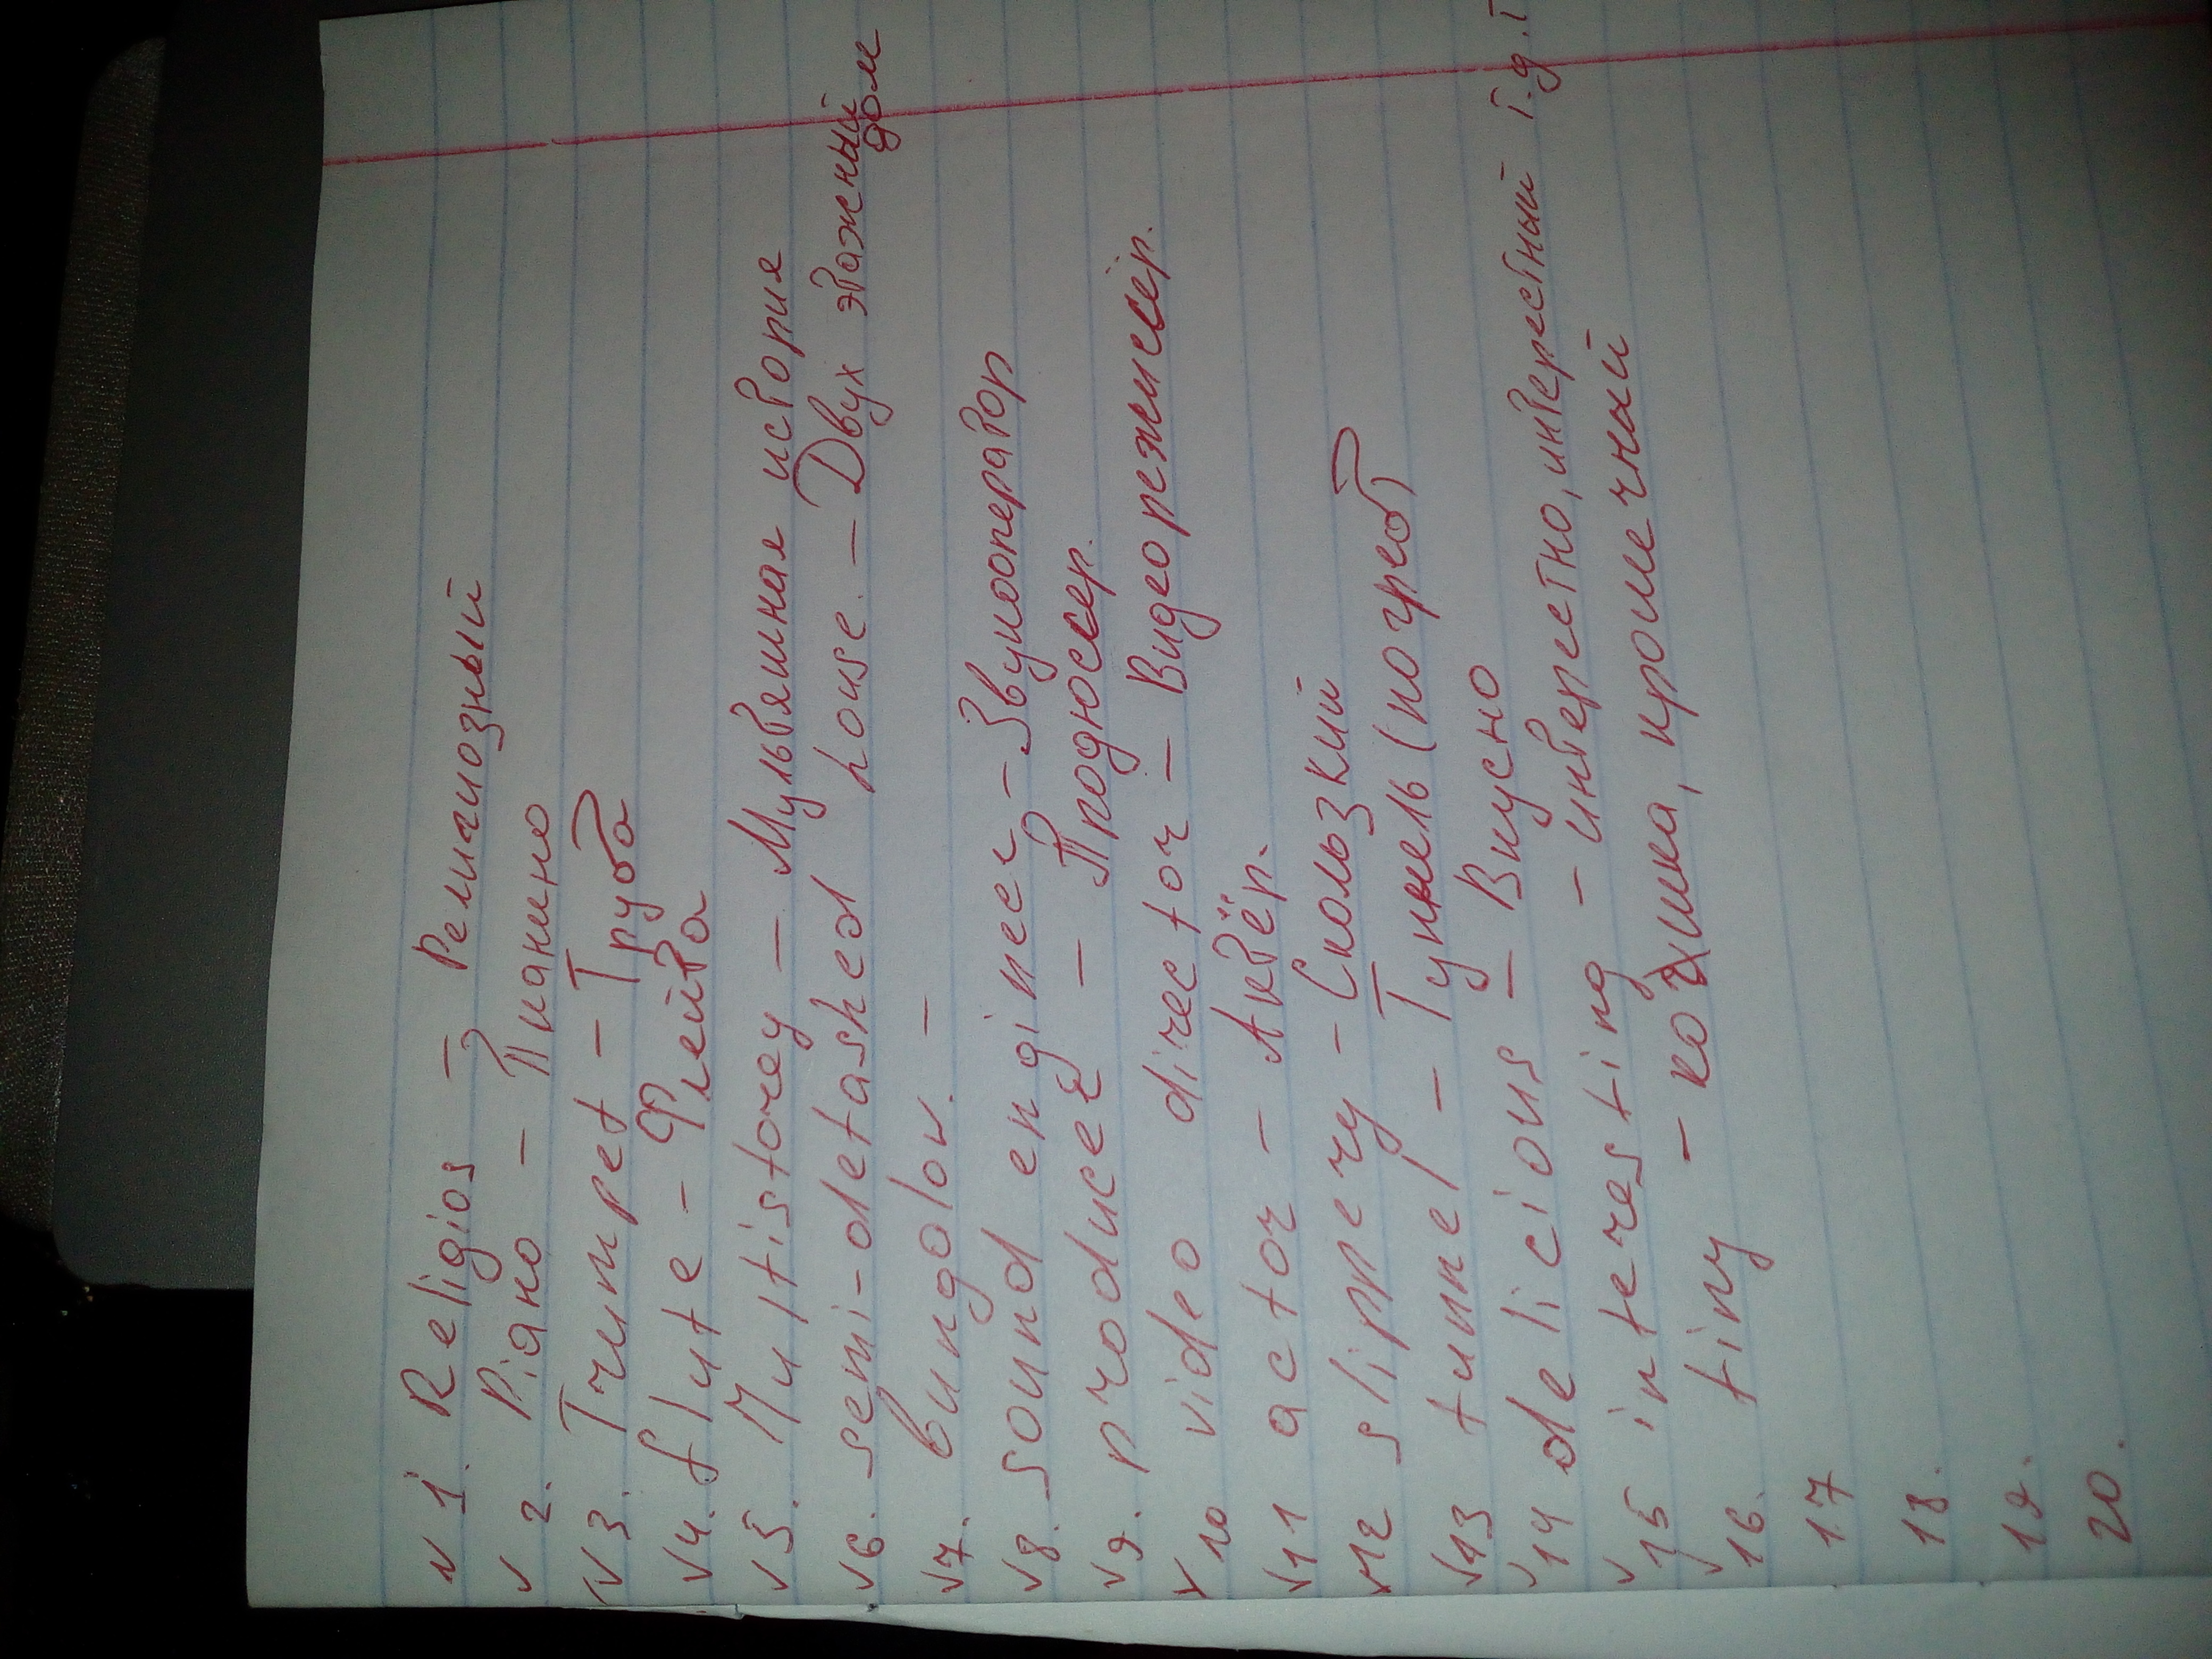 √ 1. Religios – Религиозный
√ 2. Piano – Пианино
√ 3. Trumpet – Труба
√4. flute – Флейта
√5. Multistorey – Мультяшная история
√6. semi-detashed house – Двух этажный дом
√7. bungolov. –
√8. sound engineer – Звукооператор
√9. producer – Продюссер.
√10 video director – Видеорежиссёр.
√11 actor – Актёр.
√12 slippery – Скользкий
√13 tunnel – Тунель (погреб)
√14 delicious – Вкусно
√15 interesting – интерестно, интерестный т.д.т
√16. tiny – крошечный
17
18.
19.
20.